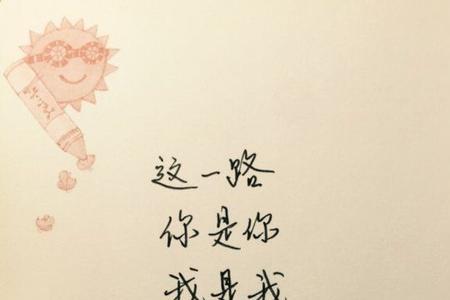 这一路
你是你
我是我